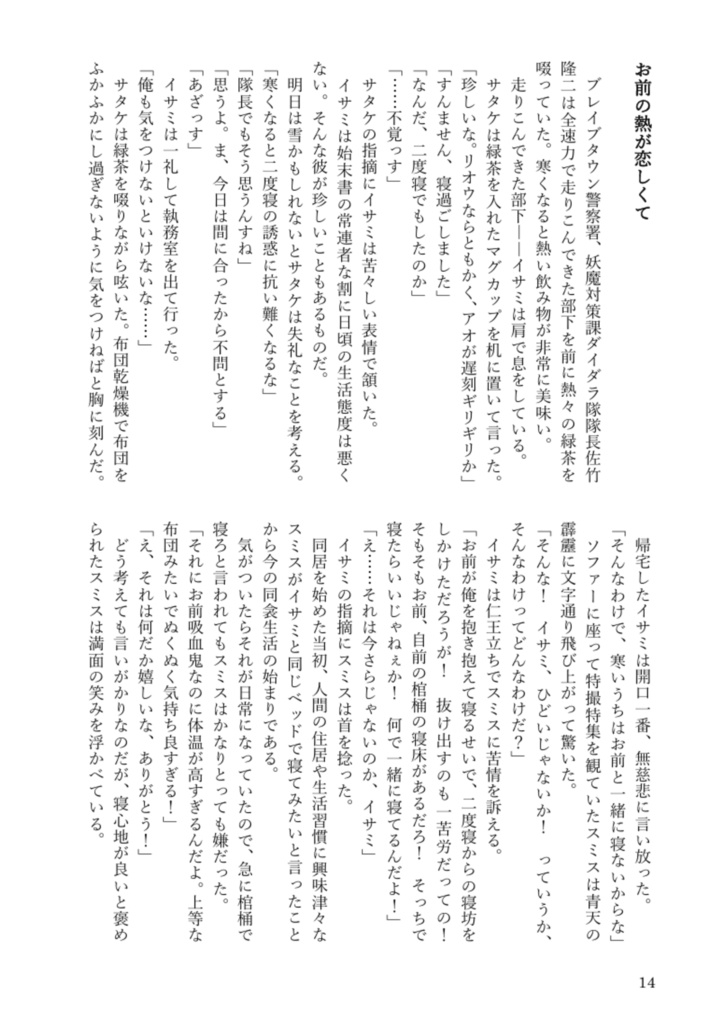 お前の熱が恋しくて
ブレイブタウン警察署、妖魔対策課ダイダラ隊隊長佐竹
隆二は全速力で走りこんできた部下を前に熱々の緑茶を
啜っていた。寒くなると熱い飲み物が非常に美味い。
走りこんできた部下――イサミは肩で息をしている。
サタケは緑茶を入れたマグカップを机に置いて言った。
「珍しいな。リオウならともかく、アオが遅刻ギリギリか」
「すんません、寝過ごしました」
「なんだ、二度寝でもしたのか」
「……不覚っす」
サタケの指摘にイサミは苦々しい表情で頷いた。
イサミは始末書の常連者な割に日頃の生活態度は悪く
ない。そんな彼が珍しいこともあるものだ。
明日は雪かもしれないとサタケは失礼なことを考える。
「寒くなると二度寝の誘惑に抗い難くなるな」
「隊長でもそう思うんすね」
「思うよ。ま、今日は間に合ったから不問とする」
「あざっす」
イサミは一礼して執務室を出て行った。
「俺も気をつけないといけないな……」
サタケは緑茶を啜りながら呟いた。布団乾燥機で布団を
ふかふかにし過ぎないように気をつけねばと胸に刻んだ。
帰宅したイサミは開口一番、無慈悲に言い放った。
「そんなわけで、寒いうちはお前と一緒に寝ないからな」
ソファーに座って特撮特集を観ていたスミスは青天の
霹靂に文字通り飛び上がって驚いた。
「そんな！　イサミ、ひどいじゃないか！　っていうか、
そんなわけってどんなわけだ？」
イサミは仁王立ちでスミスに苦情を訴える。
「お前が俺を抱き抱えて寝るせいで、二度寝からの寝坊を
しかけただろうが！　抜け出すのも一苦労だっての！
そもそもお前、自前の棺桶の寝床があるだろ！　そっちで
寝たらいいじゃねぇか！　何で一緒に寝てるんだよ！」
「え……それは今さらじゃないのか、イサミ」
イサミの指摘にスミスは首を捻った。
同居を始めた当初、人間の住居や生活習慣に興味津々な
スミスがイサミと同じベッドで寝てみたいと言ったこと
から今の同衾生活の始まりである。
気がついたらそれが日常になっていたので、急に棺桶で
寝ろと言われてもスミスはかなりとっても嫌だった。
「それにお前吸血鬼なのに体温が高すぎるんだよ。上等な
布団みたいでぬくぬく気持ち良すぎる！」
「え、それは何だか嬉しいな、ありがとう！」
どう考えても言いがかりなのだが、寝心地が良いと褒め
られたスミスは満面の笑みを浮かべている。
14